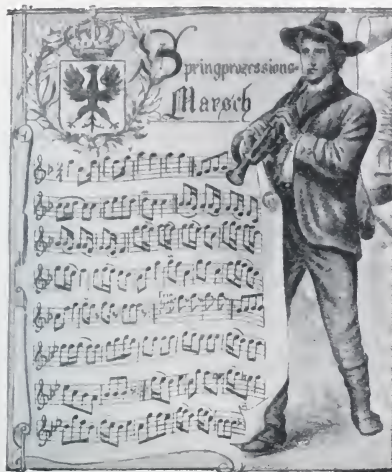 Springprozessions-
Marsch